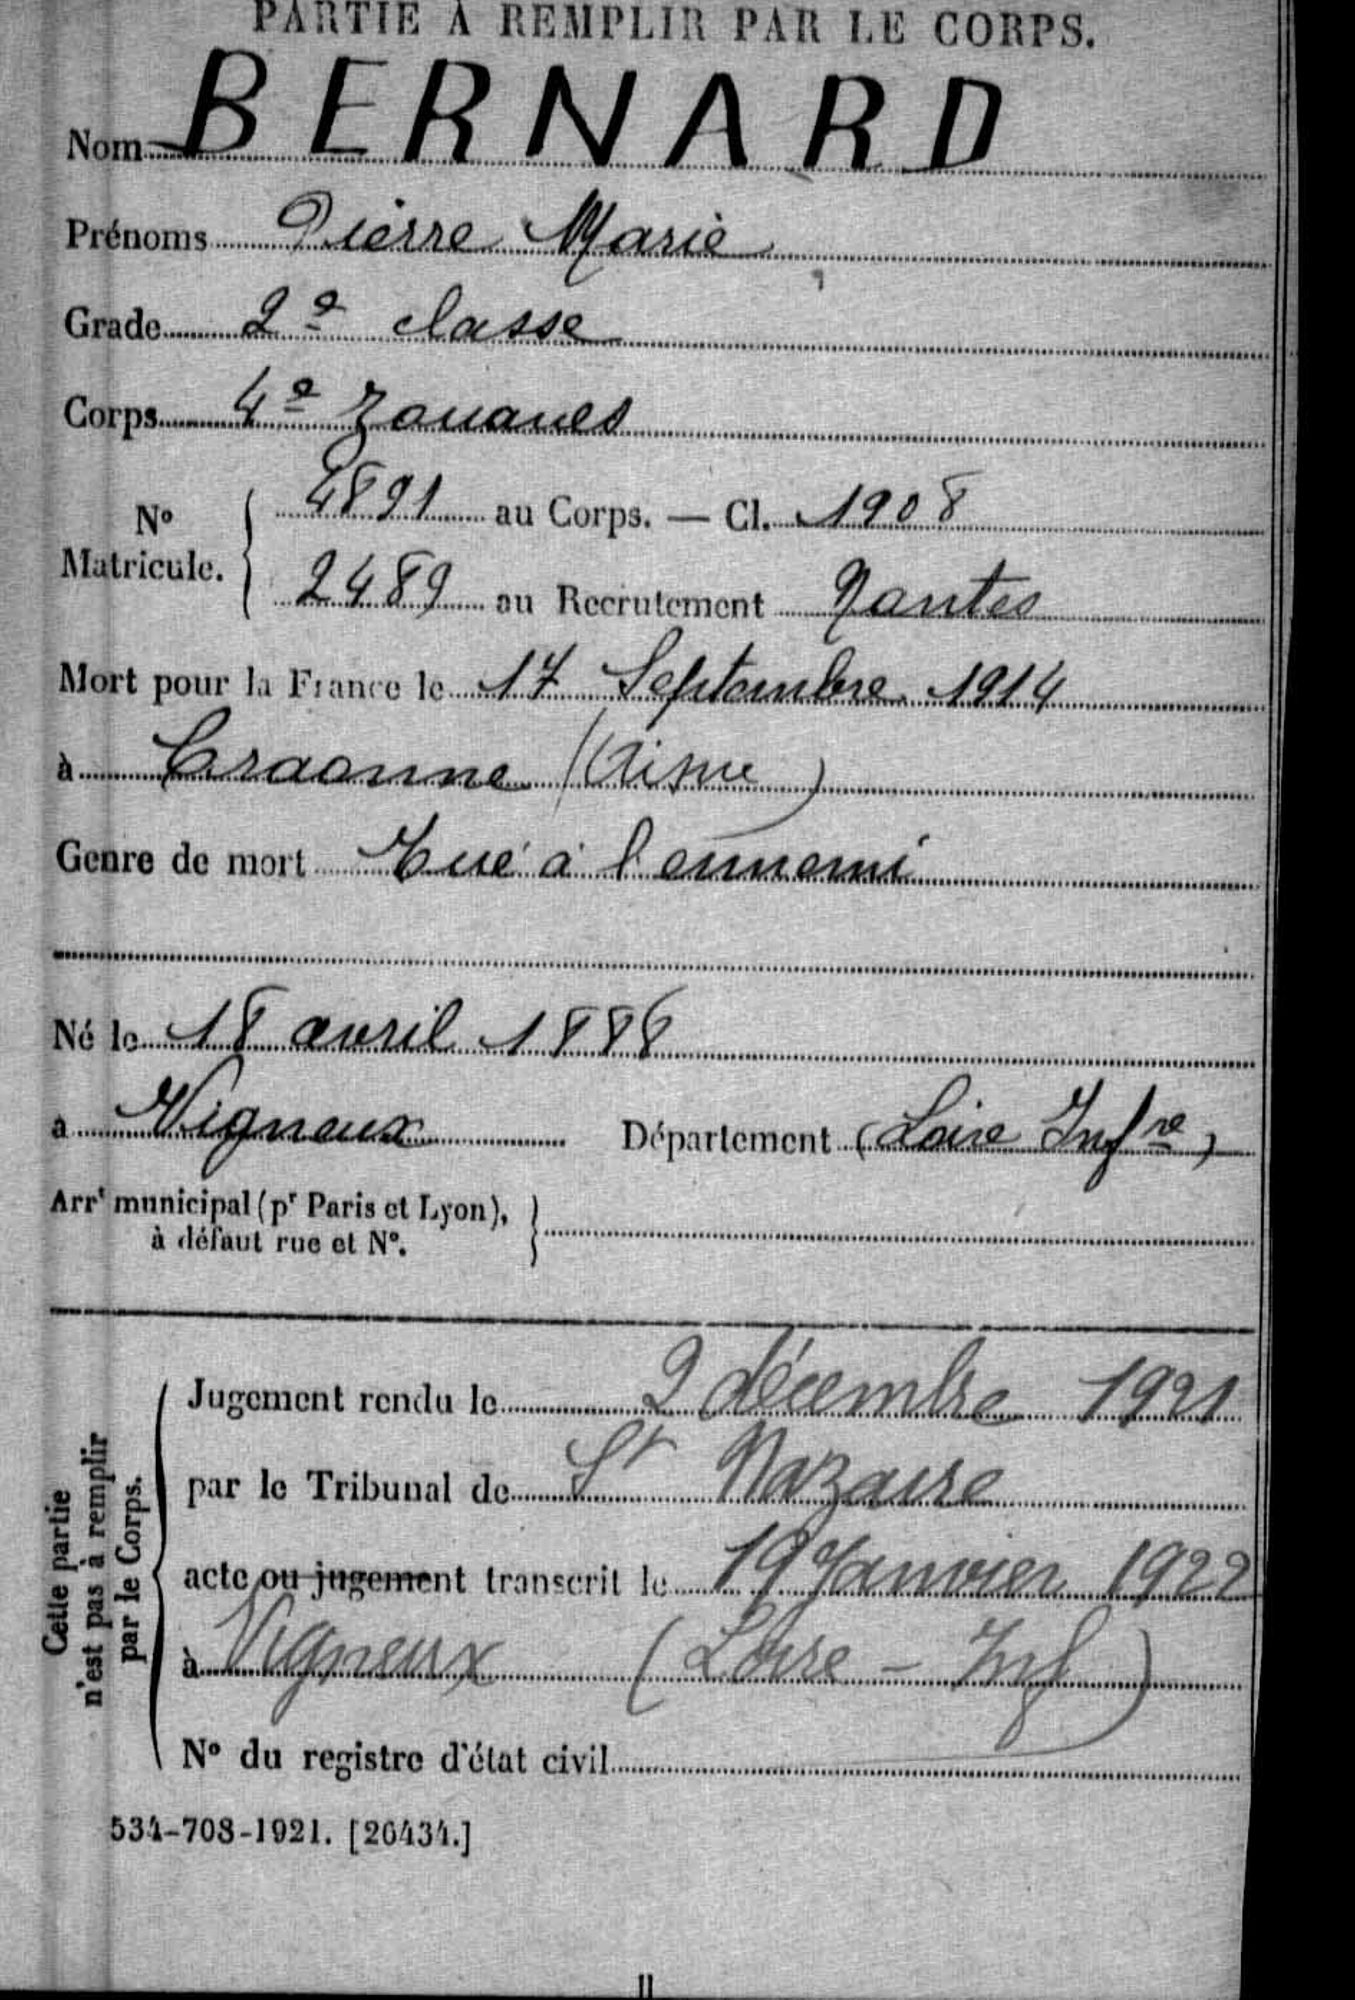 PARTIE A REMPLIR PAR LE CORPS.
Nom BERNARD
Prénoms Pierre Marie
Grade 2e classe
Corps 4e Zouaves
No Matricule. { 4891 au Corps. — Cl. 1908
2489 au Recrutement Nantes
Mort pour la France le 17 Septembre 1914
à Craonne (Aisne)
Genre de mort Tué à l'ennemi
Né le 18 avril 1888
à Vigneux Département (Loire Infre)
Arrt municipal (pr Paris et Lyon),
à défaut rue et No.
Cette partie
n'est pas à remplir
par le Corps.
Jugement rendu le 2 décembre 1921
par le Tribunal de St Nazaire
acte ou jugement transcrit le 19 Janvier 1922
à Vigneux (Loire - Inf)
No du registre d'état civil
534-708-1921. [26434.]